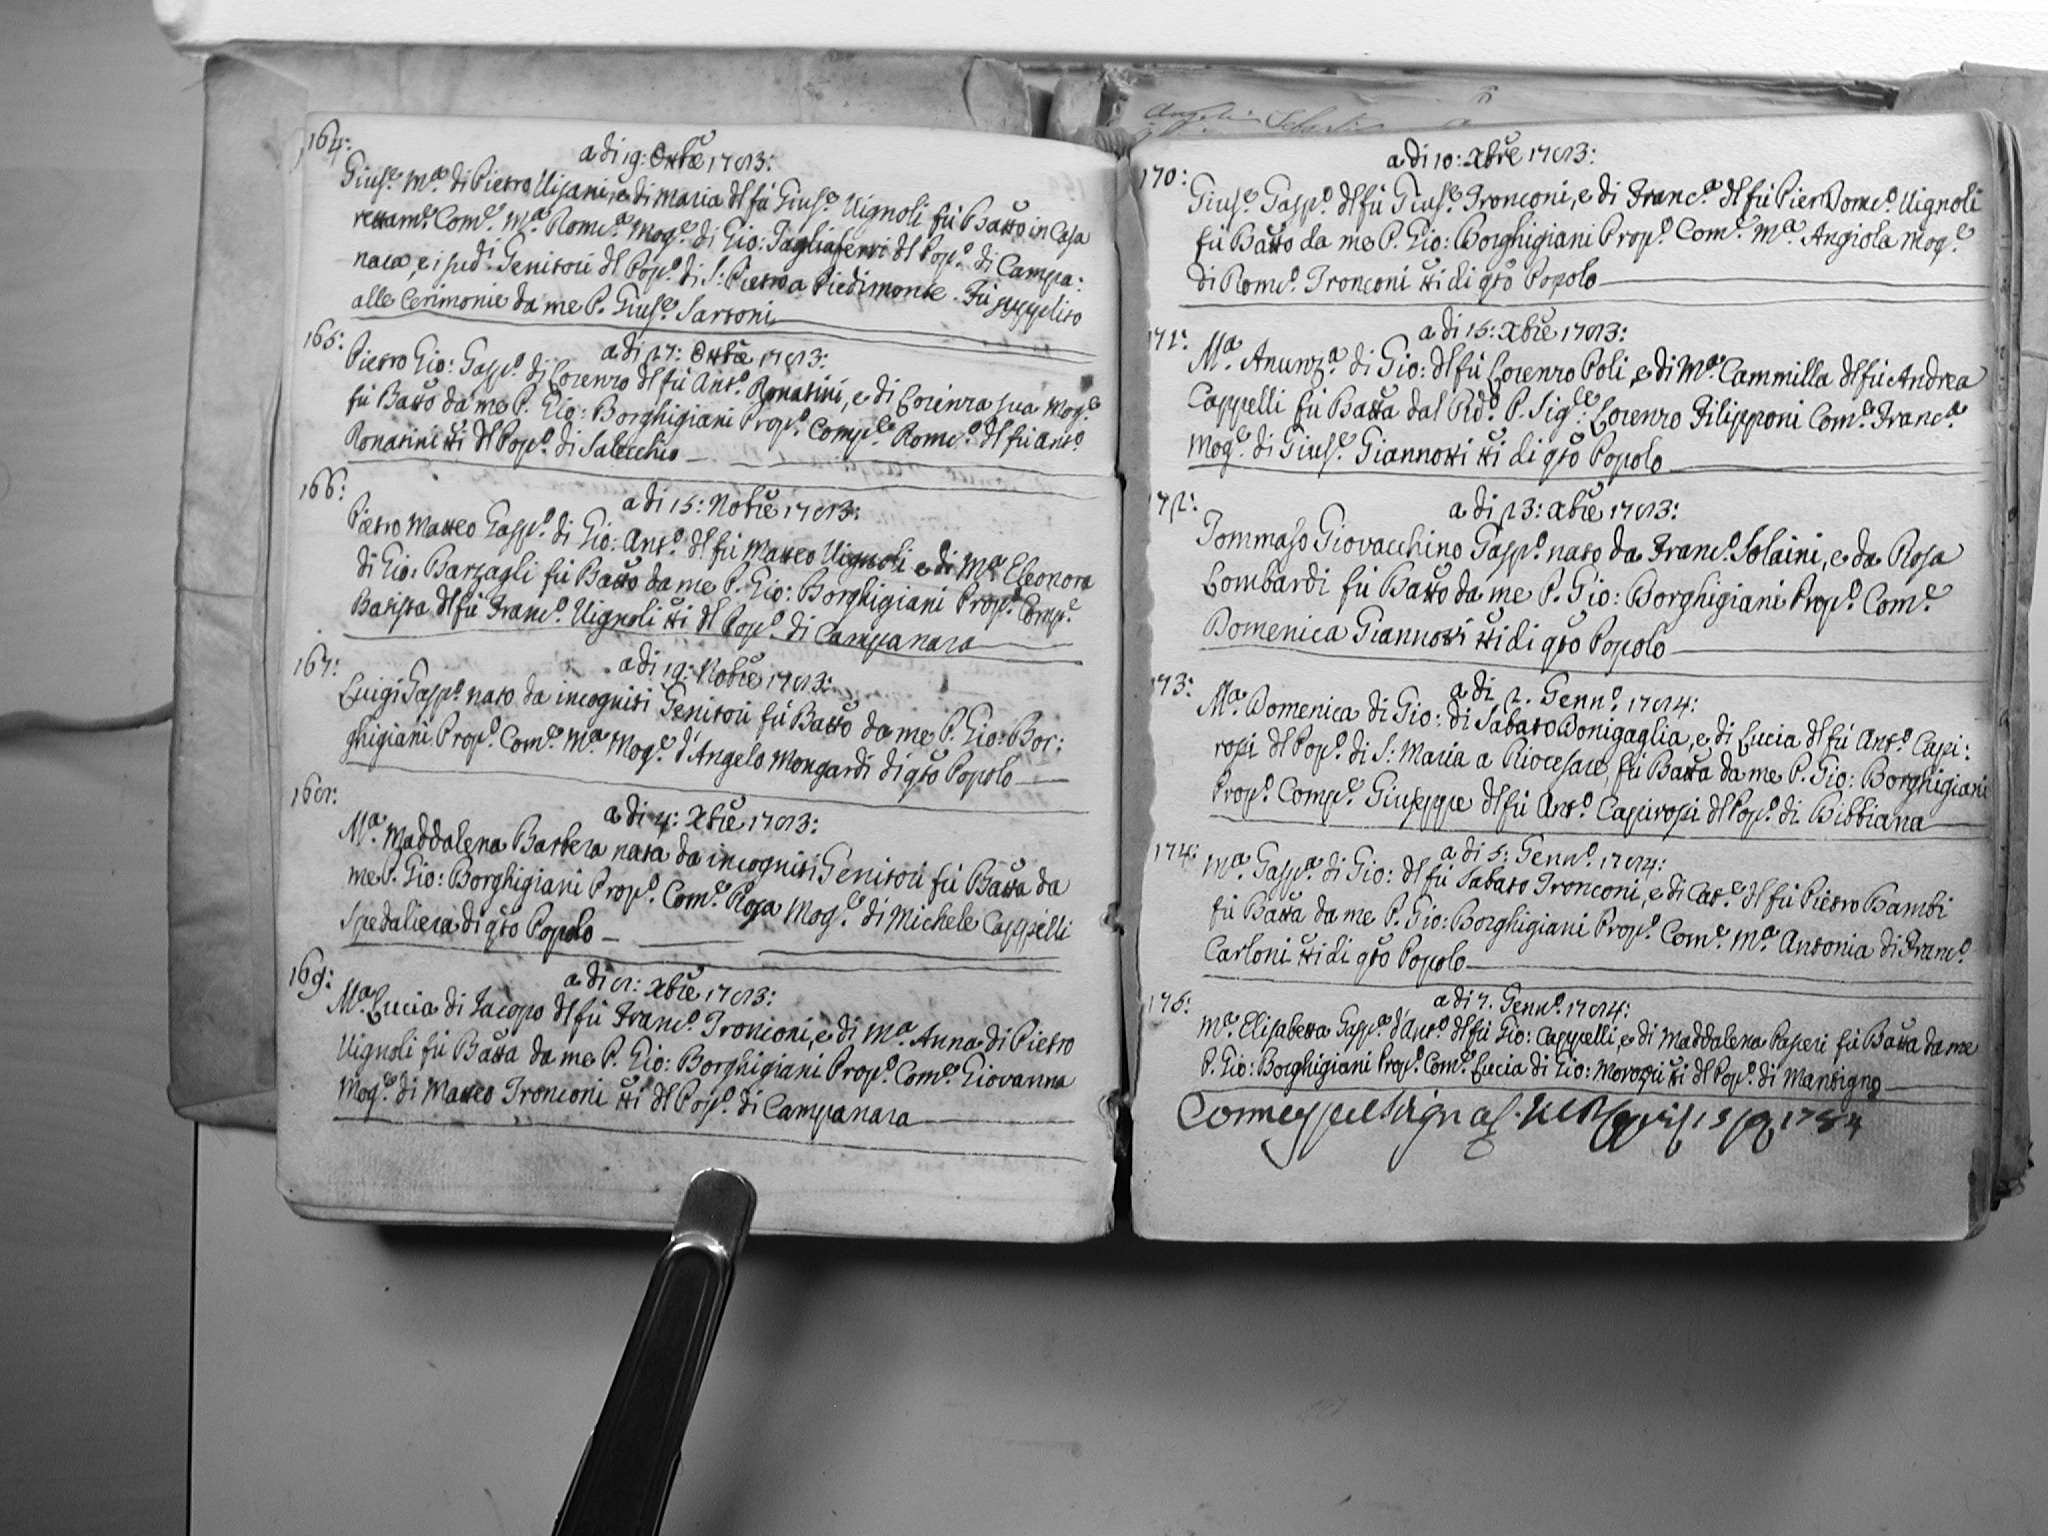 164:
a di 19: Ottbre 1783:
Giuse. Ma. di Pietro Visani, e di Maria dl fù Giuse. Vignoli fù Batto in Casa
rettame. Come. Ma. Romca. Moge. di Gio: Tagliaferri dl Popo. di Campa:
nara, e i sudi. Genitori dl Popo. di S: Pietro a Piedimonte. Fù supplito
alle Cerimonie da me P. Giuse. Sartoni
165:
a di 27: Ottbre 1783:
Pietro Gio: Gaspo. di Lorenzo dl fù Anto. Ronatini, e di Lorenza sua Moge.
fù Batto da me P. Gio: Borghigiani Propo. Compe. Romco. dl fù Anto.
Ronatini tti dl Popo. di Salecchio
166:
a di 15: Nobre 1783:
Pietro Matteo Gaspo. di Gio: Anto. dl fù Matteo Vignoli e di Ma. Eleonora
di Gio: Barzagli fù Batto da me P. Gio: Borghigiani Propo. Compe.
Batista dl fù Franco. Vignoli tti dl Popo. di Campanara
167:
a di 19: Nobre 1783:
Luigi Gaspo. nato da incogniti Genitori fù Batto da me P. Gio: Bor:
ghigiani Propo. Come. Ma. Moge. d'Angelo Mongardi di qto Popolo
168:
a di 4: Xbre 1783:
Ma. Maddalena Barbera nata da incogniti Genitori fù Batta da
me P. Gio: Borghigiani Propo. Come. Rosa Moge. di Michele Cappelli
Spedaliera di qto Popolo
169:
a di 8: Xbre 1783:
Ma. Lucia di Jacopo dl fù Franco. Tronconi, e di Ma. Anna di Pietro
Vignoli fù Batta da me P. Gio: Borghigiani Propo. Come. Giovanna
Moge. di Matteo Tronconi tti dl Popo. di Campanara
170:
a di 10: Xbre 1783:
Giuse. Gaspo. dl fù Giuse. Tronconi, e di Franca. dl fù Pier Domco. Vignoli
fù Batto da me P. Gio: Borghigiani Propo. Come. Ma. Angiola Moge.
di Romco. Tronconi tti di qto Popolo
171:
a di 15: Xbre 1783:
Ma. Anunza. di Gio: dl fù Lorenzo Poli, e di Ma. Cammilla dl fù Andrea
Cappelli fù Batta dal Rdo. P. Sige. Lorenzo Filipponi Come. Franca.
Moge. di Giuse. Giannotti tti di qto Popolo
172:
a di 23: Xbre 1783:
Tommaso Giovacchino Gaspo. nato da Franco. Solaini, e da Rosa
Lombardi fù Batto da me P. Gio: Borghigiani Propo. Come.
Domenica Giannotti tti di qto Popolo
173:
a di 2. Genno. 1784:
Ma. Domenica di Gio: di Sabato Donigaglia, e di Lucia dl fù Anto. Capi:
rosi dl Popo. di S: Maria a Riocesare, fù Batta da me P. Gio: Borghigiani
Propo. Compe. Giuseppe dl fù Anto. Capirosi dl Popo. di Bibbiana
174:
a di 5: Genno. 1784:
Ma. Gaspa. di Gio: dl fù Sabato Tronconi, e di Cate. dl fù Pietro Bambi
fù Batta da me P. Gio: Borghigiani Propo. Come. Ma. Antonia di Franco.
Carloni tti di qto Popolo
175:
a di 7. Genno. 1784:
Ma. Elisabetta Gaspa. d'Anto. dl fù Gio: Cappelli, e di Maddalena Paseri fù Batta da me
P. Gio: Borghigiani Propo. Come. Lucia di Gio: Morozzi tti dl Popo. di Mantigno
1784